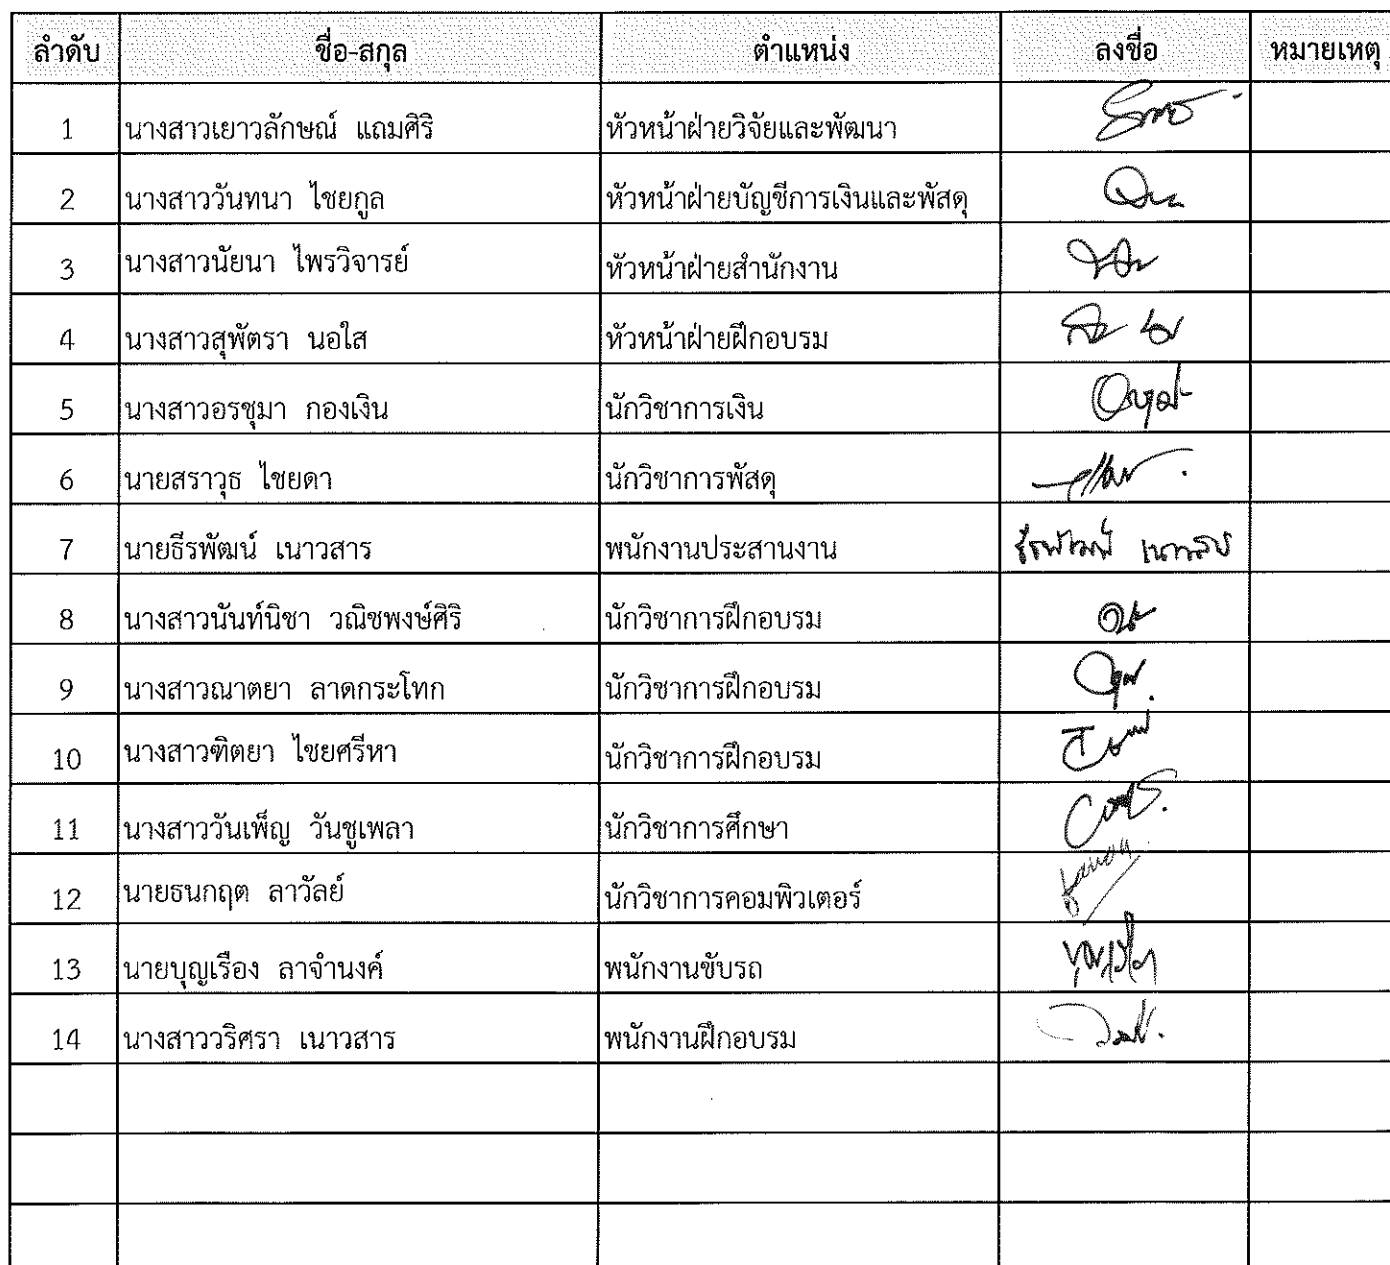 ลำดับ ชื่อ-สกุล ตำแหน่ง ลงชื่อ หมายเหตุ
1 นางสาวเยาวลักษณ์ แถมศิริ หัวหน้าฝ่ายวิจัยและพัฒนา
2 นางสาววันทนา ไชยกูล หัวหน้าฝ่ายบัญชีการเงินและพัสดุ
3 นางสาวนัยนา ไพรวิจารย์ หัวหน้าฝ่ายสำนักงาน
4 นางสาวสุพัตรา นอใส หัวหน้าฝ่ายฝึกอบรม
5 นางสาวอรชุมา กองเงิน นักวิชาการเงิน
6 นายสราวุธ ไชยดา นักวิชาการพัสดุ
7 นายธีรพัฒน์ เนาวสาร พนักงานประสานงาน ธีรพัฒน์ เนาวสาร
8 นางสาวนันท์นิชา วณิชพงษ์ศิริ นักวิชาการฝึกอบรม
9 นางสาวณาตยา ลาดกระโทก นักวิชาการฝึกอบรม
10 นางสาวฑิตยา ไชยศรีหา นักวิชาการฝึกอบรม
11 นางสาววันเพ็ญ วันชูเพลา นักวิชาการศึกษา
12 นายธนกฤต ลาวัลย์ นักวิชาการคอมพิวเตอร์
13 นายบุญเรือง ลาจำนงค์ พนักงานขับรถ
14 นางสาววริศรา เนาวสาร พนักงานฝึกอบรม